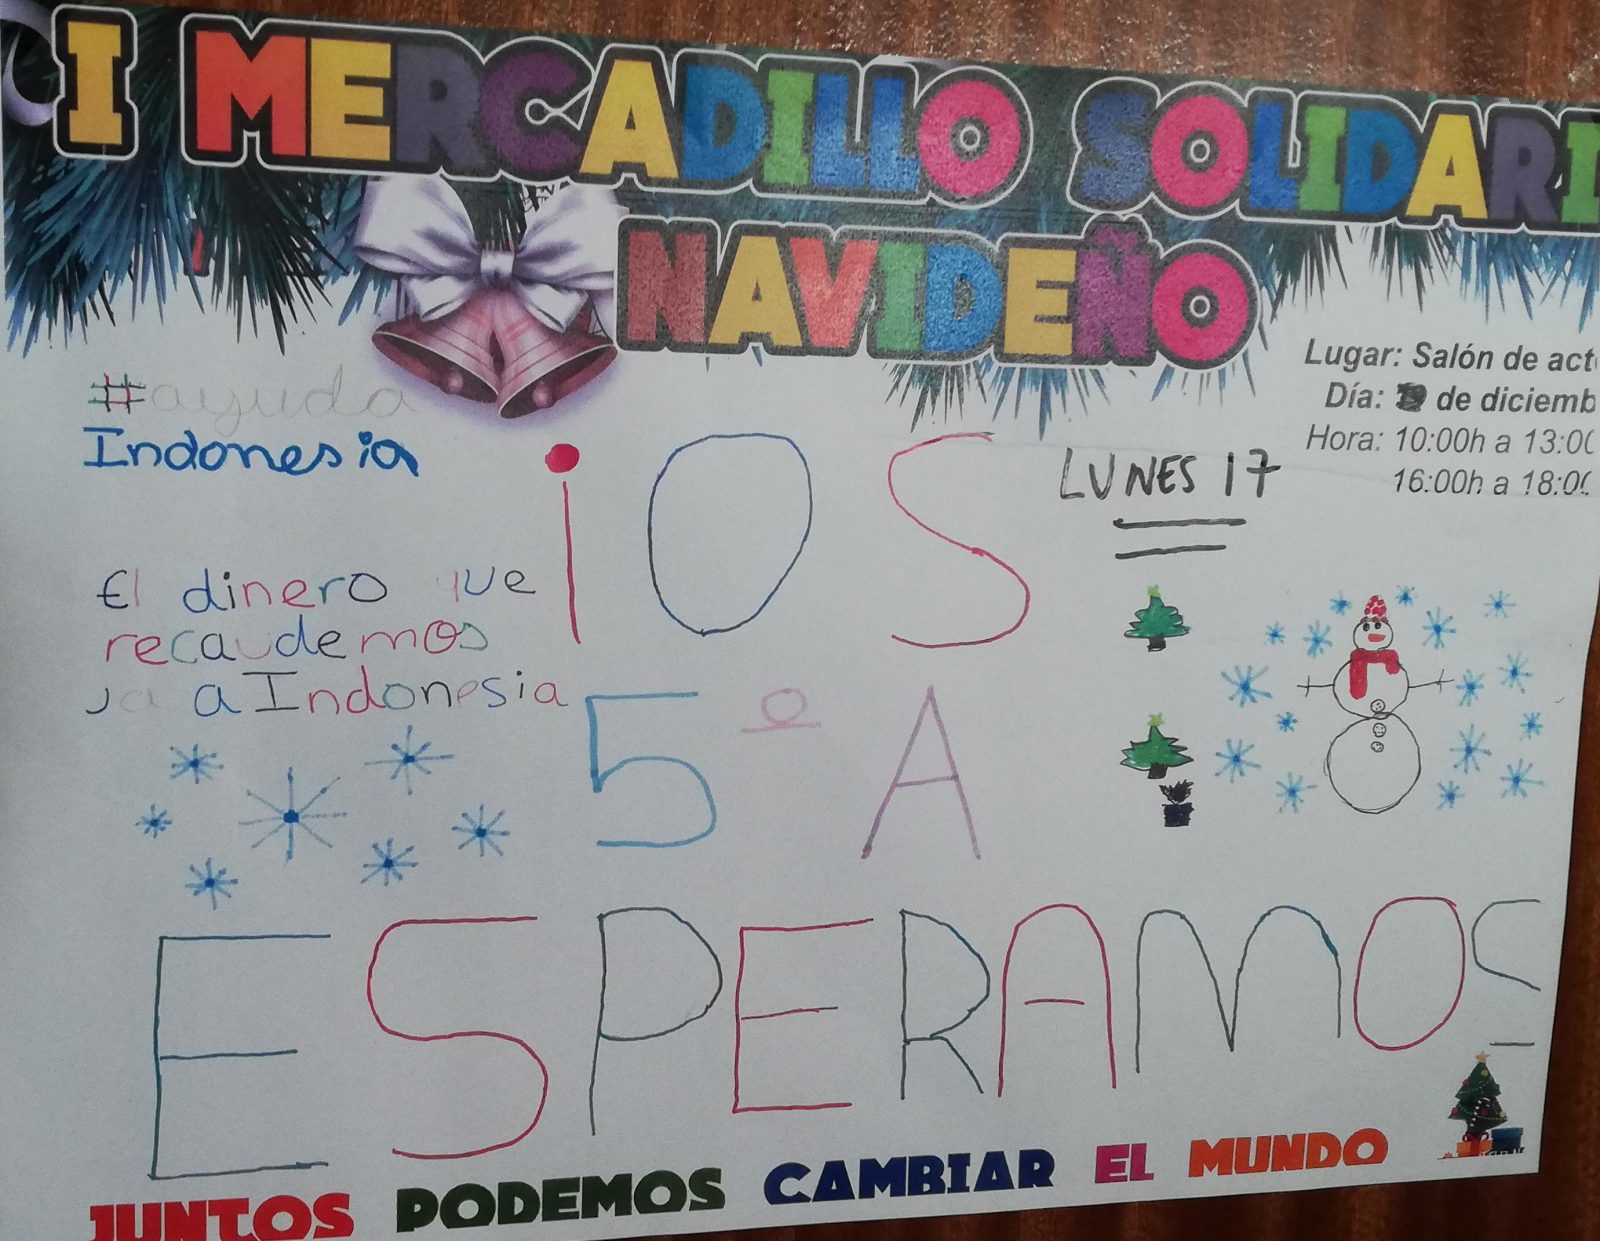 I MERCADILLO SOLIDARI
NAVIDEÑO
Lugar: Salón de act
Día: de diciemb
Hora: 10:00h a 13:00
16:00h a 18:00
LUNES 17
#ayuda
Indonesia
El dinero que
recaudemos
va a Indonesia
¡OS
5º A
ESPERAMOS
JUNTOS PODEMOS CAMBIAR EL MUNDO